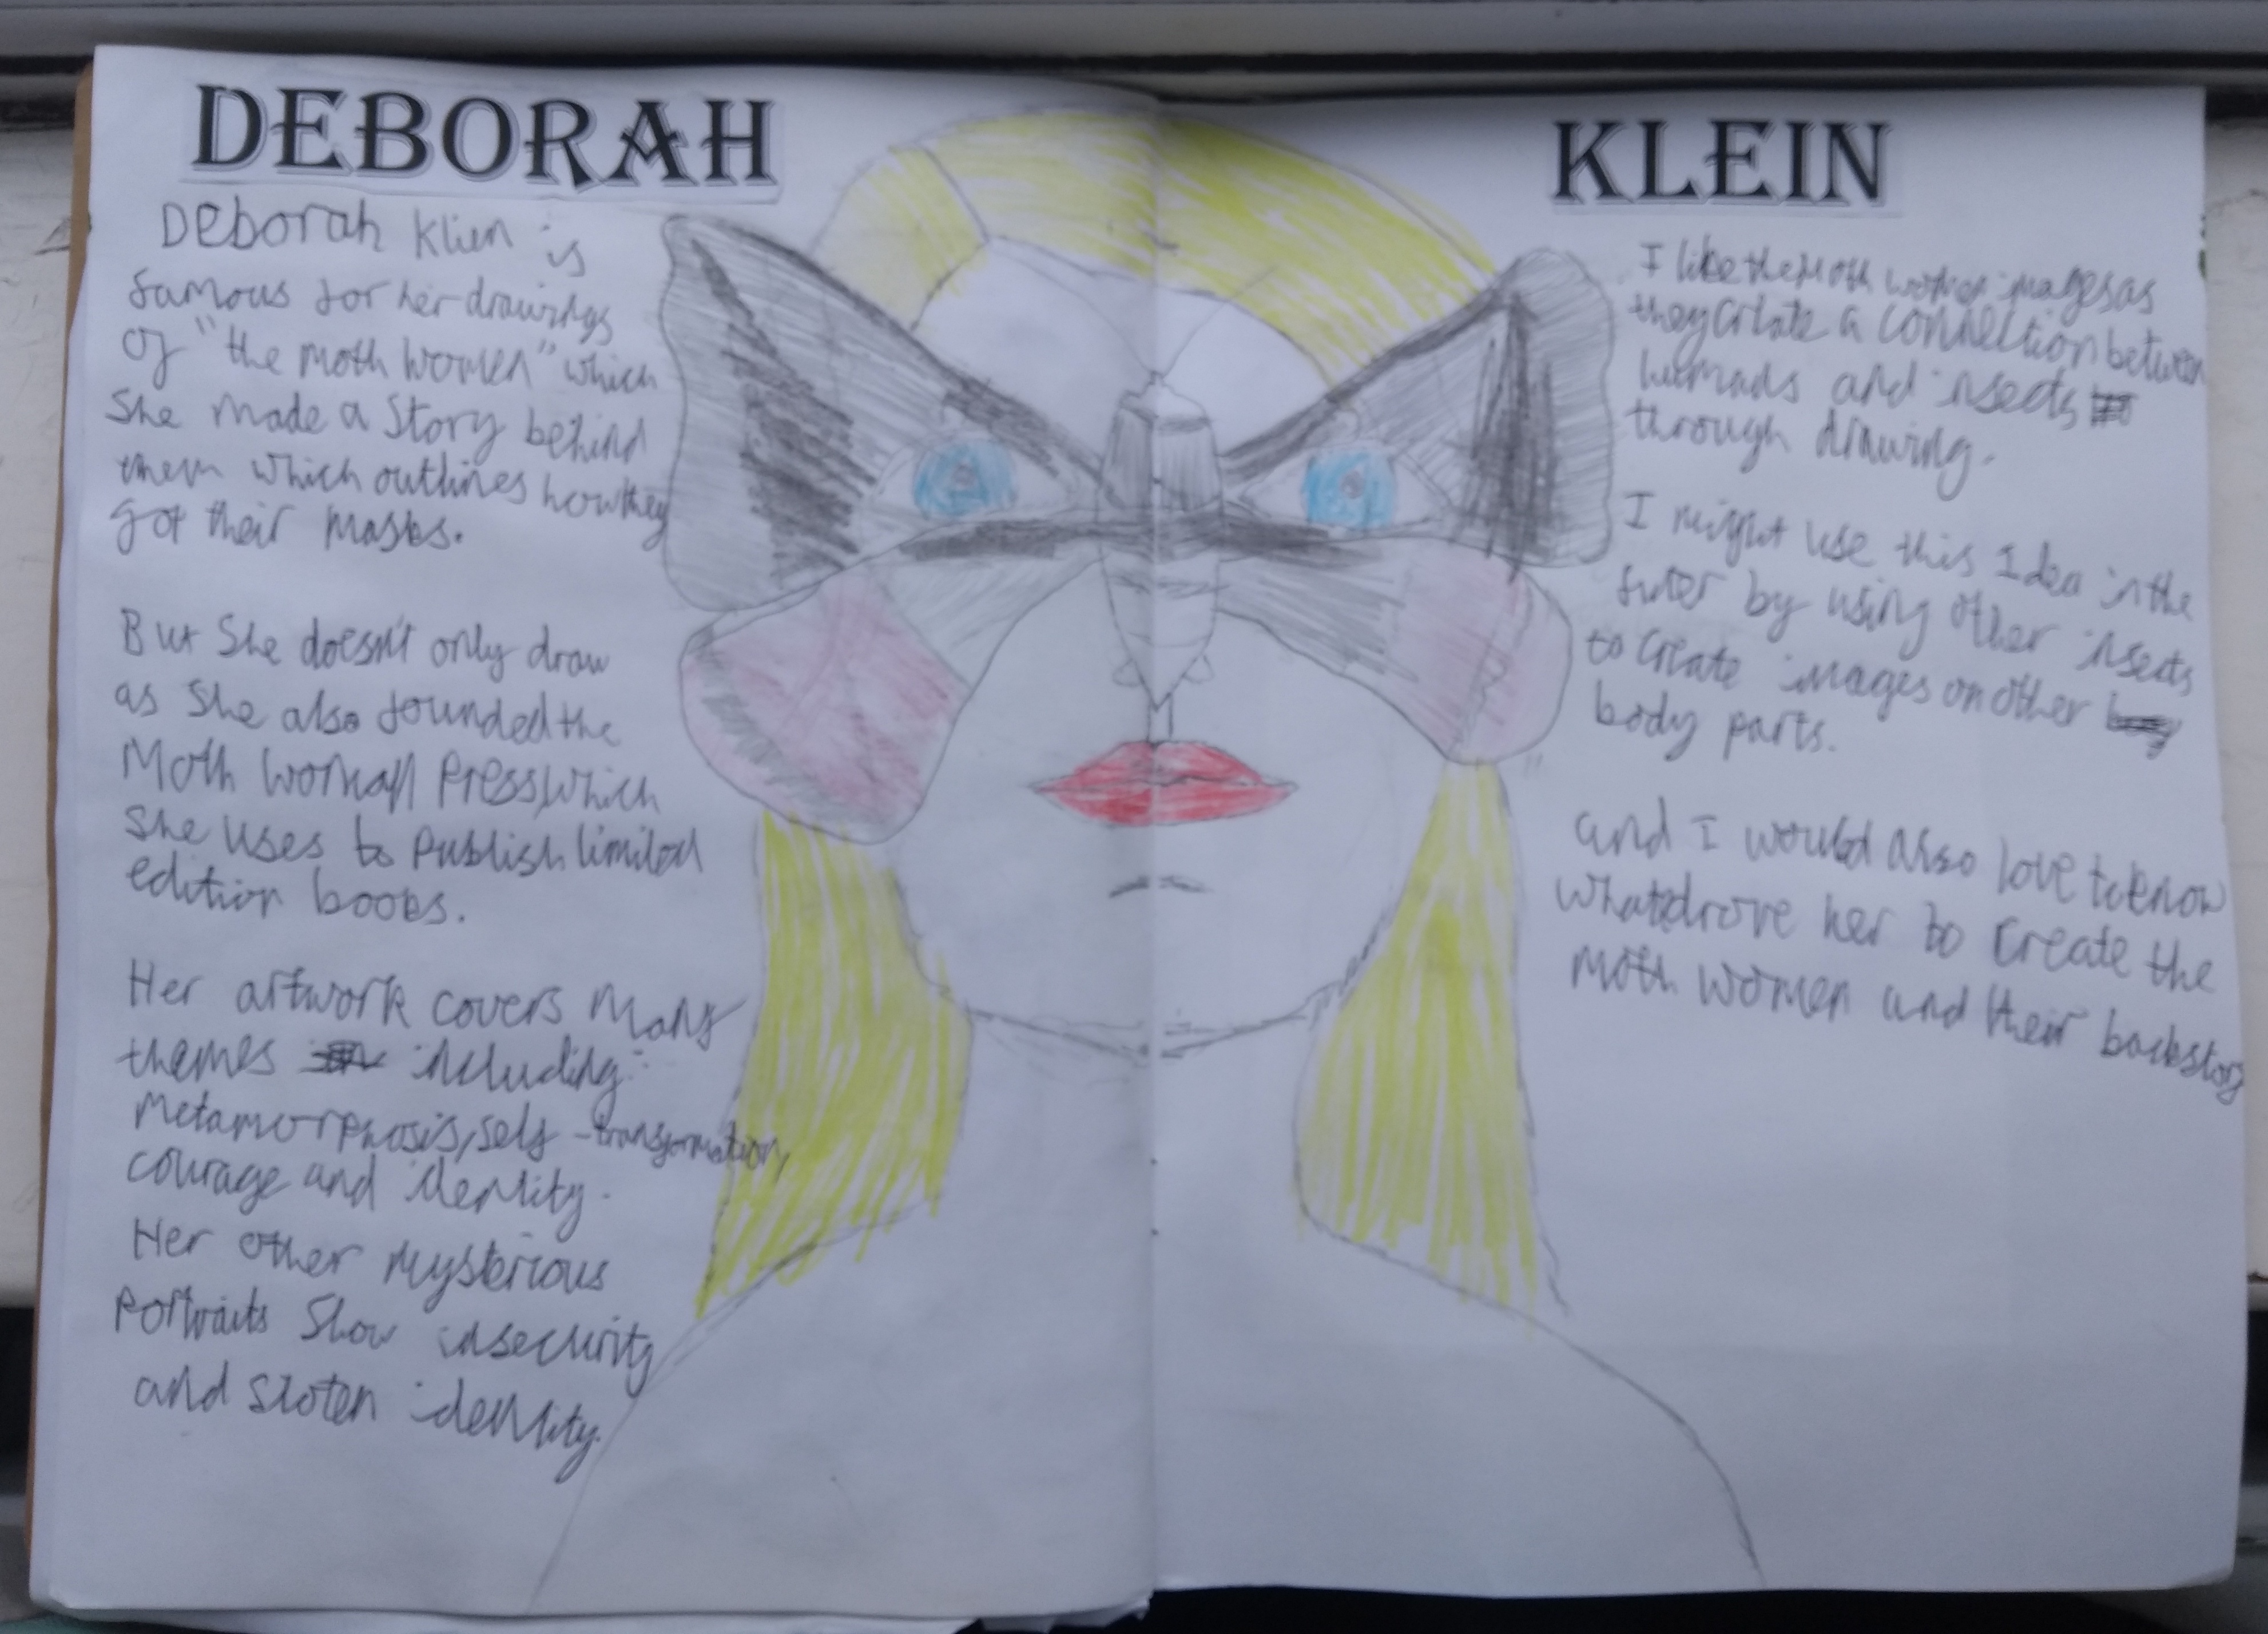 DEBORAH
Deborah Klien is
famous for her drawings
of "the moth women" which
She made a Story behind
them which outlines how they
got their masks.
But She doesn't only draw
as She also founded the
Moth Press, which
She uses to Publish limited
edition books.
Her artwork covers Many
themes including:
Metamorphosis, self-transformation,
courage and identity.
Her other Mysterious
Portraits Show insecurity
and stolen identity.
KLEIN
I like the Moth women images as
they create a connection between
humans and insects
through drawing.
I might use this Idea in the
by using other insects
to create images on other
body parts.
and I would also love to know
what drove her to Create the
Moth Women and their backstory